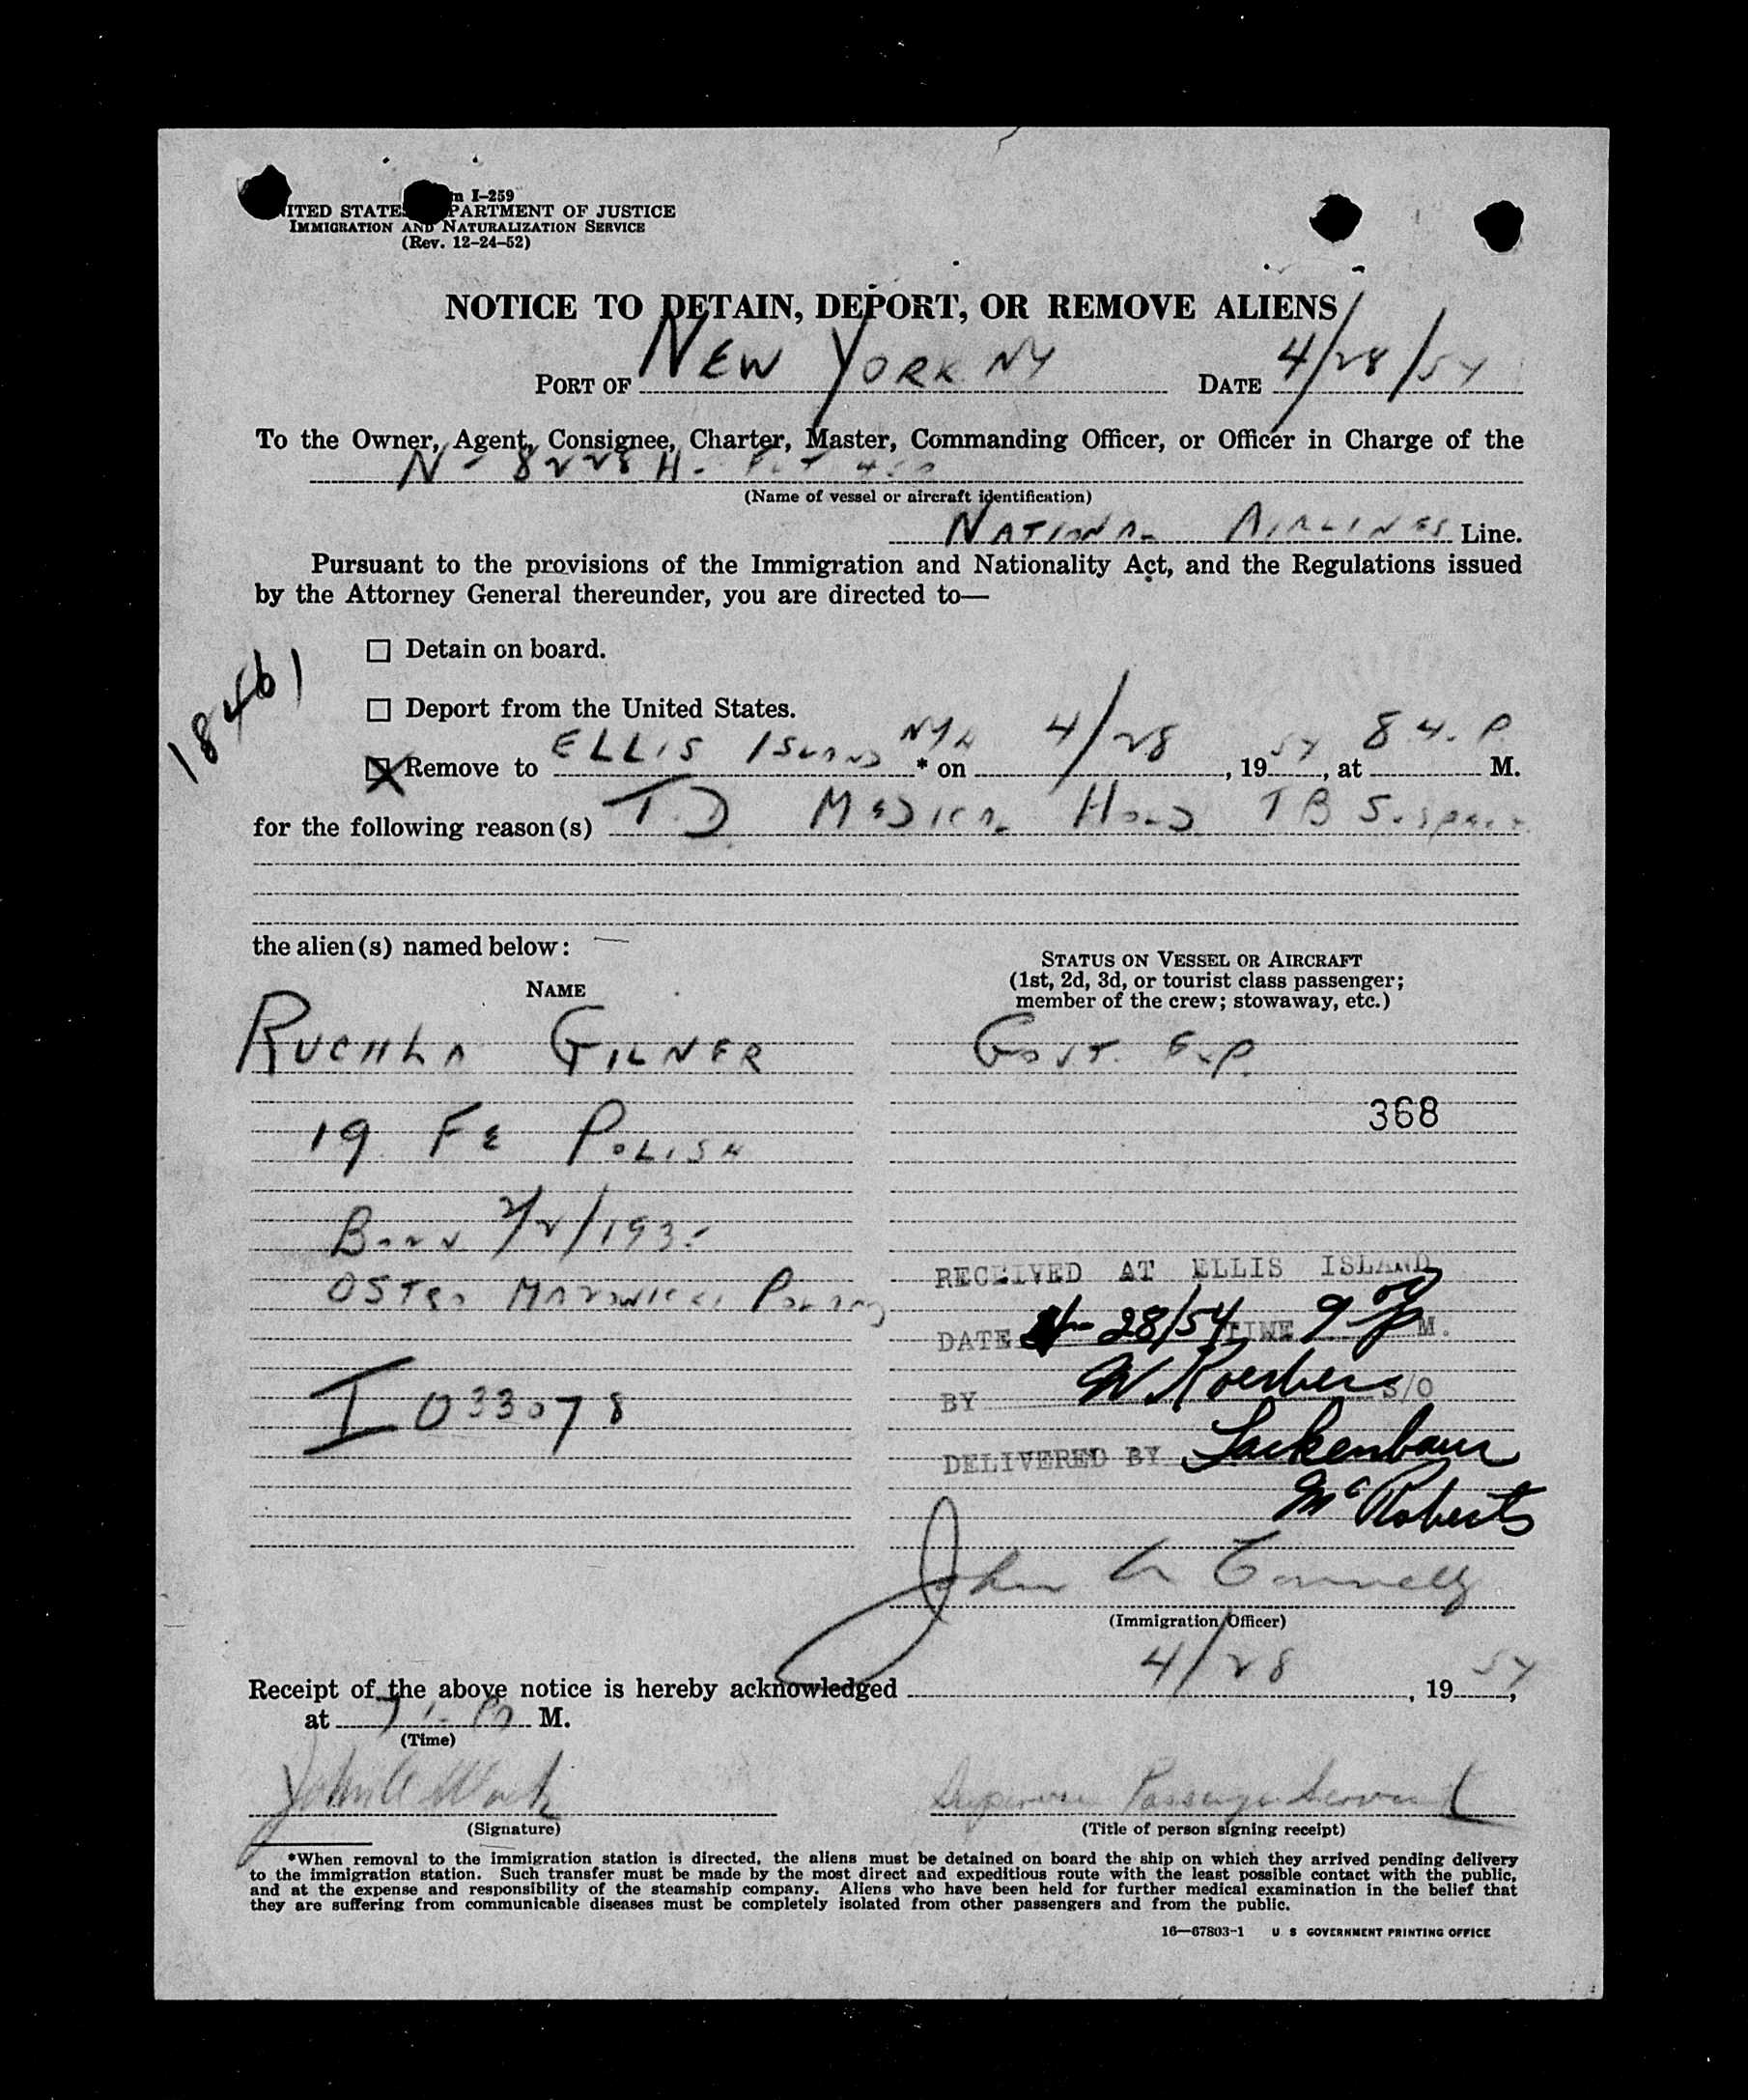 I-259
UNITED STATES DEPARTMENT OF JUSTICE
IMMIGRATION AND NATURALIZATION SERVICE
(Rev. 12-24-52)
NOTICE TO DETAIN, DEPORT, OR REMOVE ALIENS
PORT OF NEW YORK NY DATE 4/28/54
To the Owner, Agent, Consignee, Charter, Master, Commanding Officer, or Officer in Charge of the
N-8228H-
(Name of vessel or aircraft identification)
NATIONAL AIRLINES Line.
Pursuant to the provisions of the Immigration and Nationality Act, and the Regulations issued
by the Attorney General thereunder, you are directed to—
☐ Detain on board.
☐ Deport from the United States.
18461
☒ Remove to ELLIS ISLAND NYH * on 4/28, 1954, at 8 P M.
for the following reason(s) T.D MEDICAL HOLD TB Suspect
the alien(s) named below:
STATUS ON VESSEL OR AIRCRAFT
(1st, 2d, 3d, or tourist class passenger;
member of the crew; stowaway, etc.)
NAME
RUCHLA GILNER GOVT. EXP.
368
19 FE POLISH
BORN 2/2/1935
OSTRO MAZOWIECKI POLAND
RECEIVED AT ELLIS ISLAND
DATE 4-28/54 TIME 9 00 P M.
BY S/O
I 033078
DELIVERED BY Lackenbaur
McRoberts
John A Connelly
(Immigration Officer)
Receipt of the above notice is hereby acknowledged 4/28, 1954,
at M.
(Time)
John A
Supervisor Passenger Service
(Signature) (Title of person signing receipt)
*When removal to the immigration station is directed, the aliens must be detained on board the ship on which they arrived pending delivery
to the immigration station. Such transfer must be made by the most direct and expeditious route with the least possible contact with the public,
and at the expense and responsibility of the steamship company. Aliens who have been held for further medical examination in the belief that
they are suffering from communicable diseases must be completely isolated from other passengers and from the public.
16—67803-1 U S GOVERNMENT PRINTING OFFICE